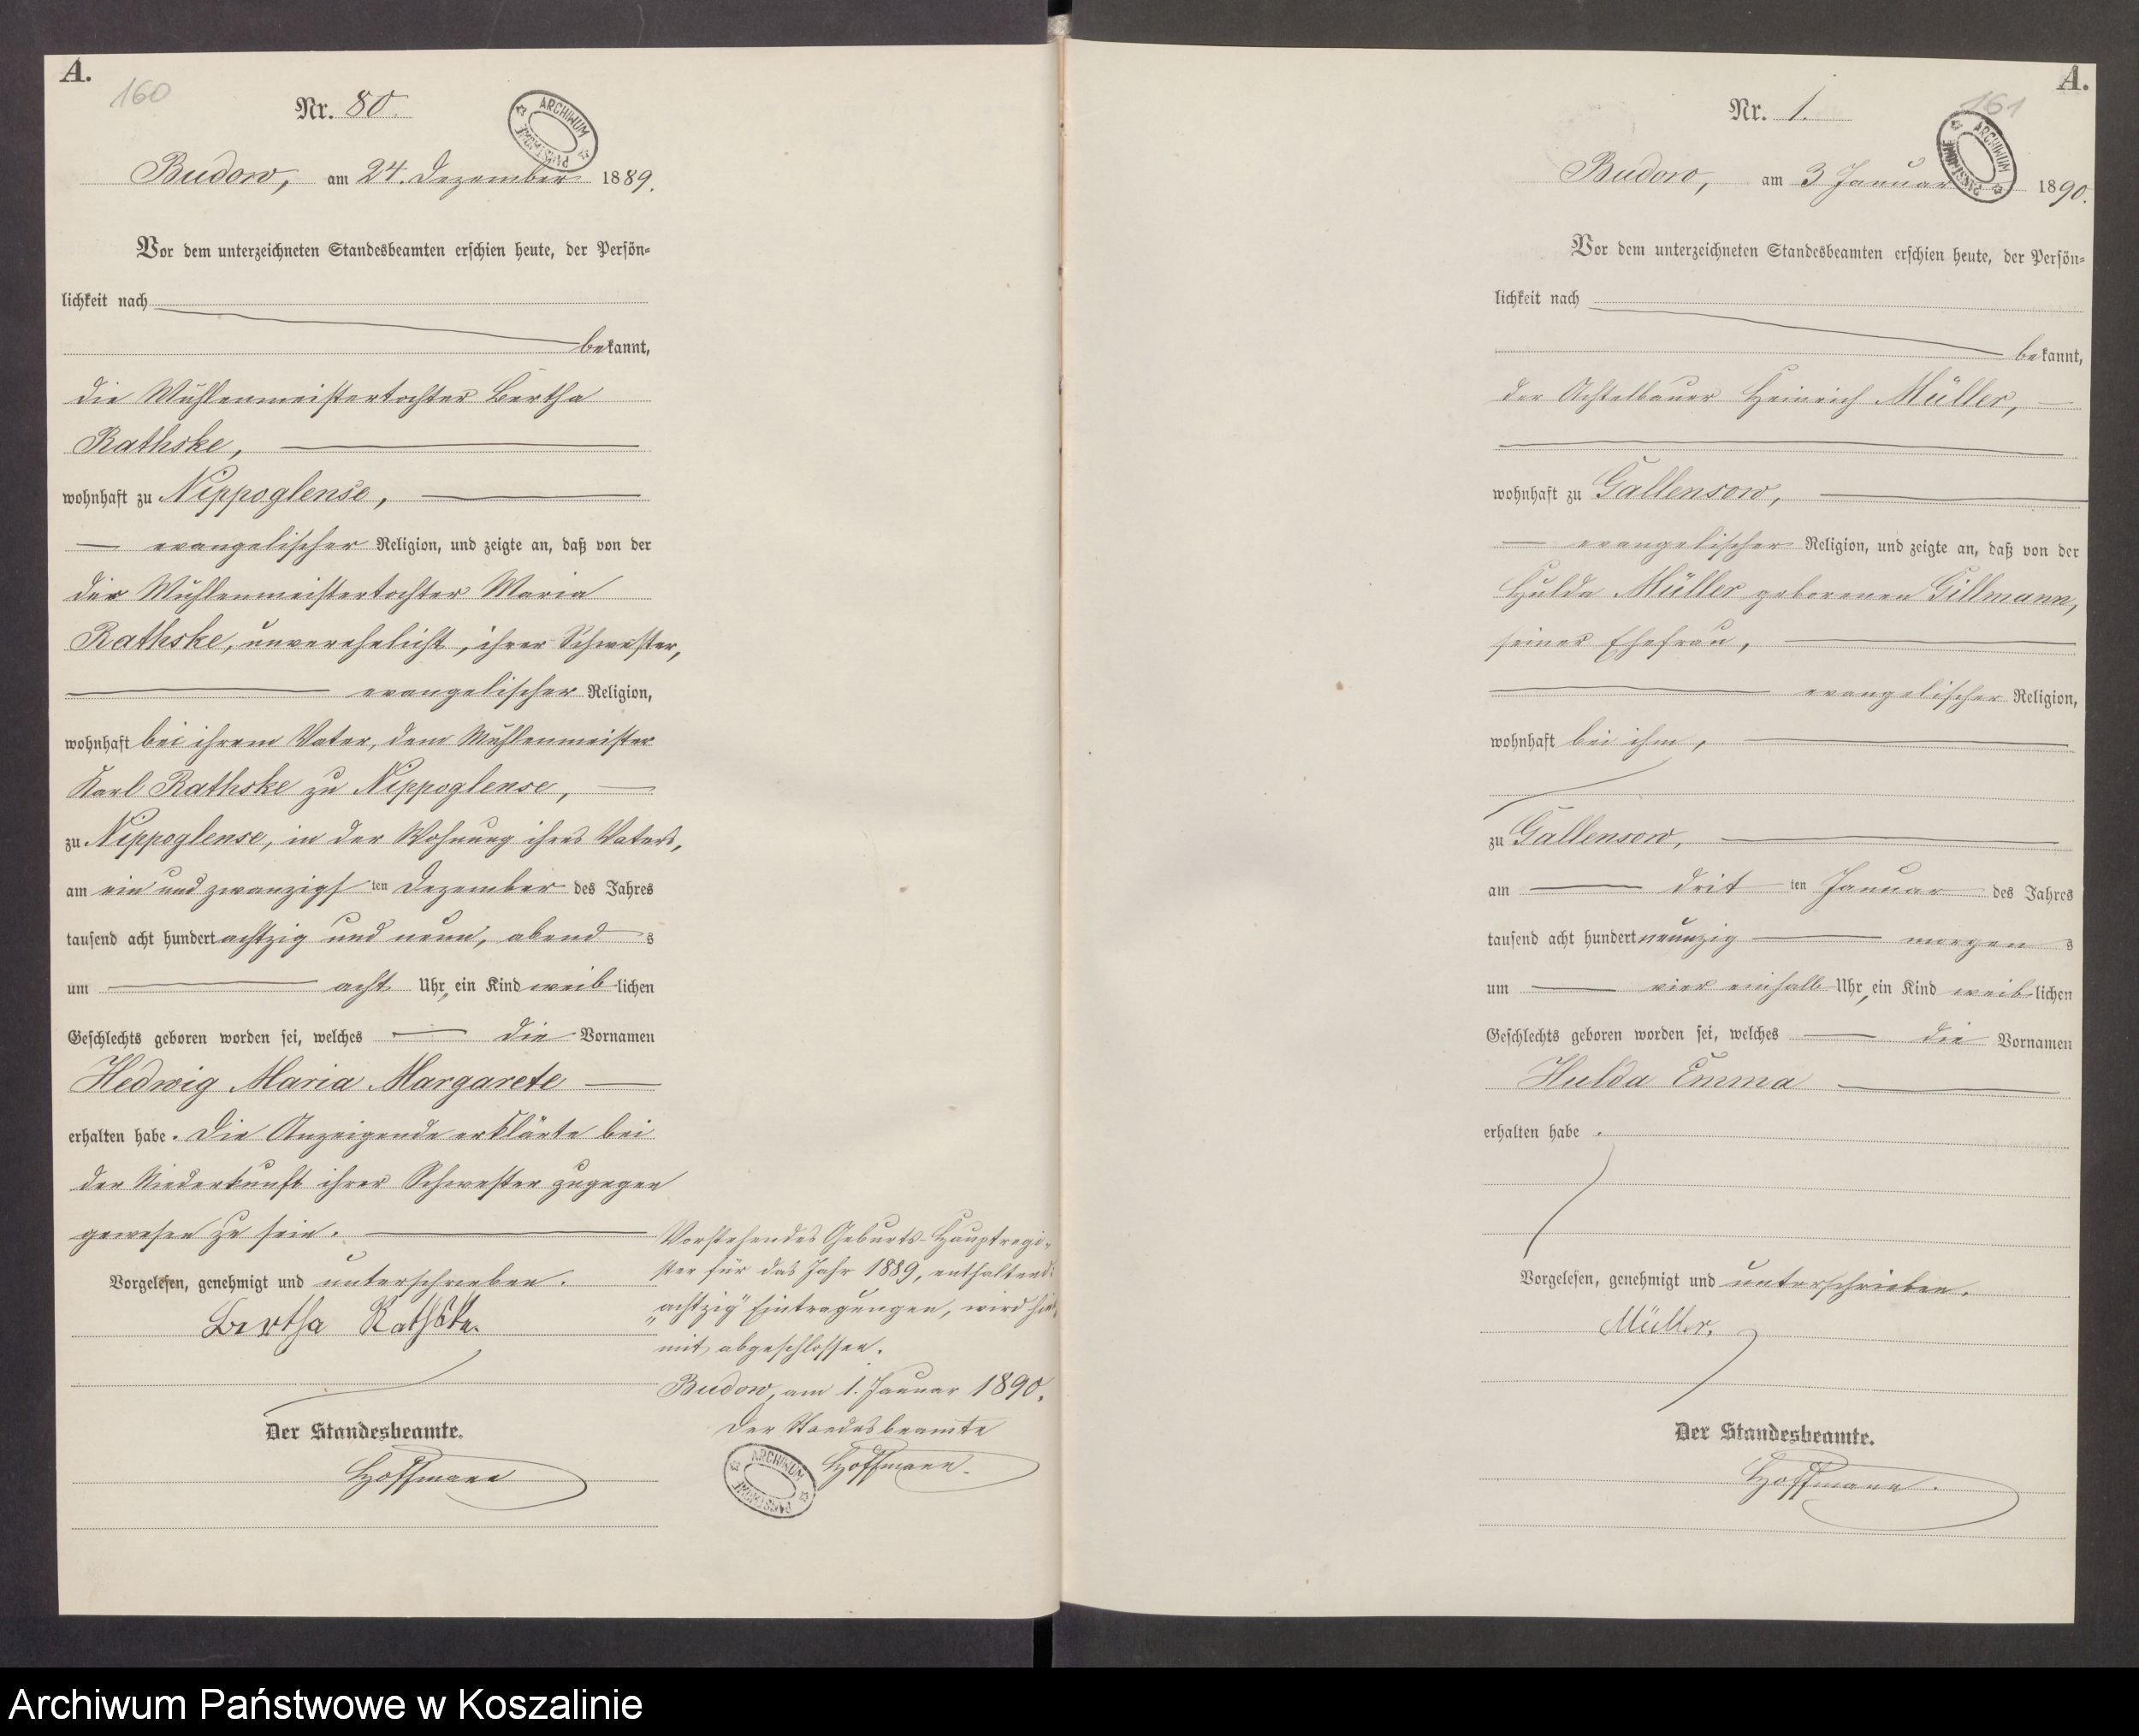 A.
160
Nr. 80.
ARCHIWUM PAŃSTWOWE
Budow, am 24. Dezember 1889.
Vor dem unterzeichneten Standesbeamten erschien heute, der Persön-
lichkeit nach
bekannt,
die Mühlenmeistertochter Bertha
Rathske,
wohnhaft zu Nippoglense,
evangelischer Religion, und zeigte an, daß von der
der Mühlenmeistertochter Maria
Rathske, unverehelicht, ihrer Schwester,
evangelischer Religion,
wohnhaft bei ihrem Vater, dem Mühlenmeister
Karl Rathske zu Nippoglense,
zu Nippoglense, in der Wohnung ihres Vaters,
am ein und zwanzigsten Dezember des Jahres
tausend acht hundert achtzig und neun, abends
um acht Uhr, ein Kind weiblichen
Geschlechts geboren worden sei, welches die Vornamen
Hedwig Maria Margarete
erhalten habe. Die Anzeigende erklärte bei
der Niederkunft ihrer Schwester zugegen
gewesen zu sein.
Vorgelesen, genehmigt und unterschrieben.
Bertha Rathske.
Der Standesbeamte.
Hoffmann
Vorstehendes Geburts-Hauptregi-
ster für das Jahr 1889, enthaltend:
„achtzig" Eintragungen, wird hier-
mit abgeschlossen.
Budow, am 1. Januar 1890.
Der Standesbeamte
Hoffmann.
ARCHIWUM PAŃSTWOWE
A.
161
Nr. 1.
ARCHIWUM PAŃSTWOWE
Budow, am 3 Januar 1890.
Vor dem unterzeichneten Standesbeamten erschien heute, der Persön-
lichkeit nach
bekannt,
der Achtelbauer Heinrich Müller,
wohnhaft zu Gallensow,
evangelischer Religion, und zeigte an, daß von der
Hulda Müller geborenen Gillmann,
seiner Ehefrau,
evangelischer Religion,
wohnhaft bei ihm,
zu Gallensow,
am dritten Januar des Jahres
tausend acht hundert neunzig morgens
um vier einhalb Uhr, ein Kind weiblichen
Geschlechts geboren worden sei, welches die Vornamen
Hulda Emma
erhalten habe.
Vorgelesen, genehmigt und unterschrieben.
Müller.
Der Standesbeamte.
Hoffmann.
Archiwum Państwowe w Koszalinie